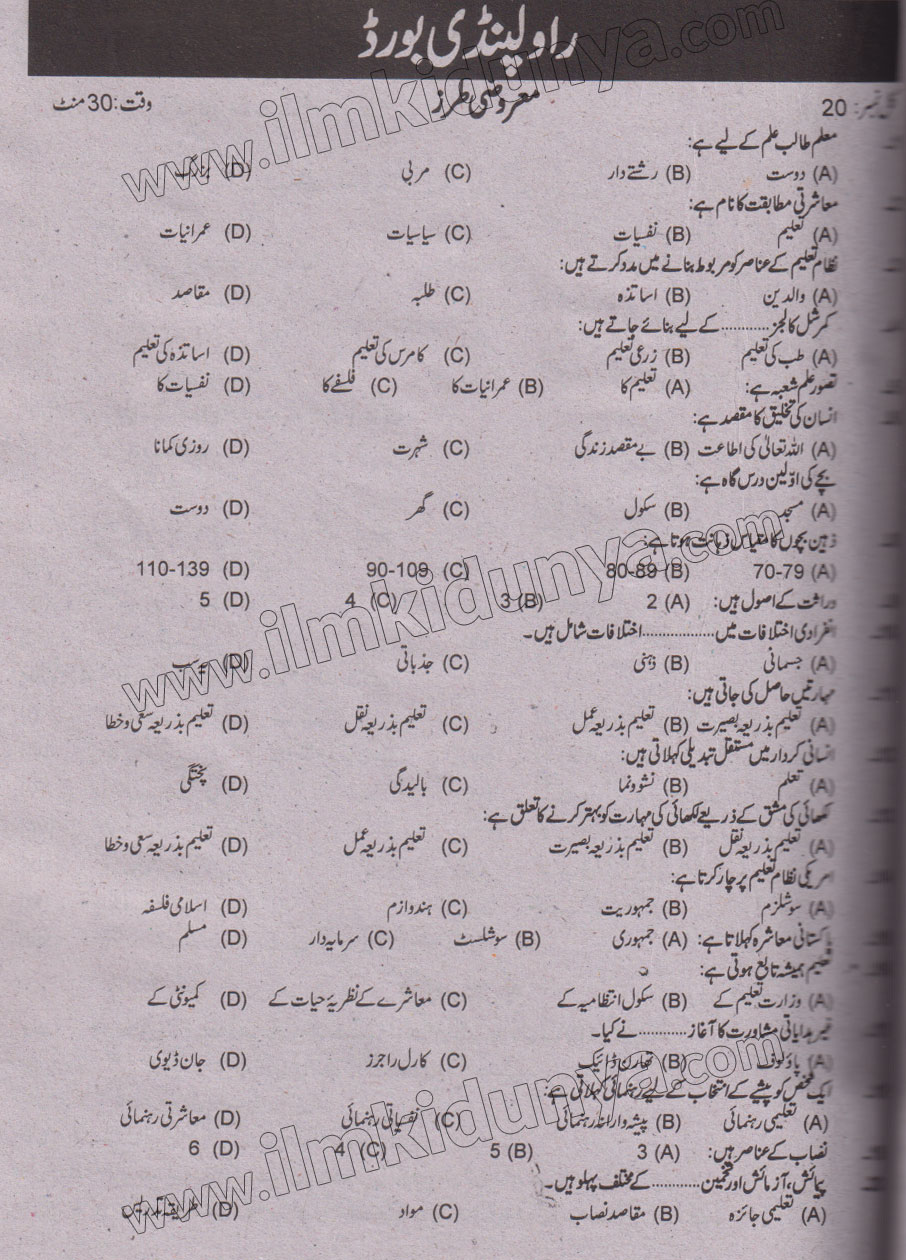 راولپنڈی بورڈ
کل نمبر: 20 معروضی طرز وقت: 30 منٹ
معلم طالب علم کے لیے ہے:
(A) دوست (B) رشتے دار (C) مربی (D) بزرگ
معاشرتی مطابقت کا نام ہے:
(A) تعلیم (B) نفسیات (C) سیاسیات (D) عمرانیات
نظام تعلیم کے عناصر کو مربوط بنانے میں مدد کرتے ہیں:
(A) والدین (B) اساتذہ (C) طلبہ (D) مقاصد
کمرشل کالجز ........... کے لیے بنائے جاتے ہیں:
(A) طب کی تعلیم (B) زرعی تعلیم (C) کامرس کی تعلیم (D) اساتذہ کی تعلیم
تصور علم شعبہ ہے: (A) تعلیم کا (B) عمرانیات کا (C) فلسفے کا (D) نفسیات کا
انسان کی تخلیق کا مقصد ہے:
(A) اللہ تعالیٰ کی اطاعت (B) بے مقصد زندگی (C) شہرت (D) روزی کمانا
بچے کی اوّلین درس گاہ ہے:
(A) مسجد (B) سکول (C) گھر (D) دوست
ذہین بچوں کا مقیاس ذہانت ہوتا ہے:
(A) 70-79 (B) 80-89 (C) 90-109 (D) 110-139
وراثت کے اصول ہیں: (A) 2 (B) 3 (C) 4 (D) 5
انفرادی اختلافات میں ................ اختلافات شامل ہیں۔
(A) جسمانی (B) ذہنی (C) جذباتی (D) یہ سب
مہارتیں حاصل کی جاتی ہیں:
(A) تعلیم بذریعہ بصیرت (B) تعلیم بذریعہ عمل (C) تعلیم بذریعہ نقل (D) تعلیم بذریعہ سعی و خطا
انسانی کردار میں مستقل تبدیلی کہلاتی ہیں:
(A) تعلم (B) نشوونما (C) بالیدگی (D) پختگی
لکھائی کی مشق کے ذریعے لکھائی کی مہارت کو بہتر کرنے کا تعلق ہے:
(A) تعلیم بذریعہ نقل (B) تعلیم بذریعہ بصیرت (C) تعلیم بذریعہ عمل (D) تعلیم بذریعہ سعی و خطا
امریکی نظام تعلیم پرچار کرتا ہے:
(A) سوشلزم (B) جمہوریت (C) ہندوازم (D) اسلامی فلسفہ
پاکستانی معاشرہ کہلاتا ہے: (A) جمہوری (B) سوشلسٹ (C) سرمایہ دار (D) مسلم
تعلیم ہمیشہ تابع ہوتی ہے:
(A) وزارت تعلیم کے (B) سکول انتظامیہ کے (C) معاشرے کے نظریۂ حیات کے (D) کمیونٹی کے
غیر ہدایاتی مشاورت کا آغاز ........... نے کیا۔
(A) پاؤلوف (B) تھارن ڈائیک (C) کارل راجرز (D) جان ڈیوی
ایک شخص کو پیشے کے انتخاب کے لیے رہنمائی کہلاتی ہے:
(A) تعلیمی رہنمائی (B) پیشہ وارانہ رہنمائی (C) نفسیاتی رہنمائی (D) معاشرتی رہنمائی
نصاب کے عناصر ہیں: (A) 3 (B) 5 (C) 4 (D) 6
پیمائش، آزمائش اور تخمین ........... کے مختلف پہلو ہیں۔
(A) تعلیمی جائزہ (B) مقاصد نصاب (C) مواد (D) طریقہ تدریس
www.ilmkidunya.com
www.ilmkidunya.com
www.ilmkidunya.com